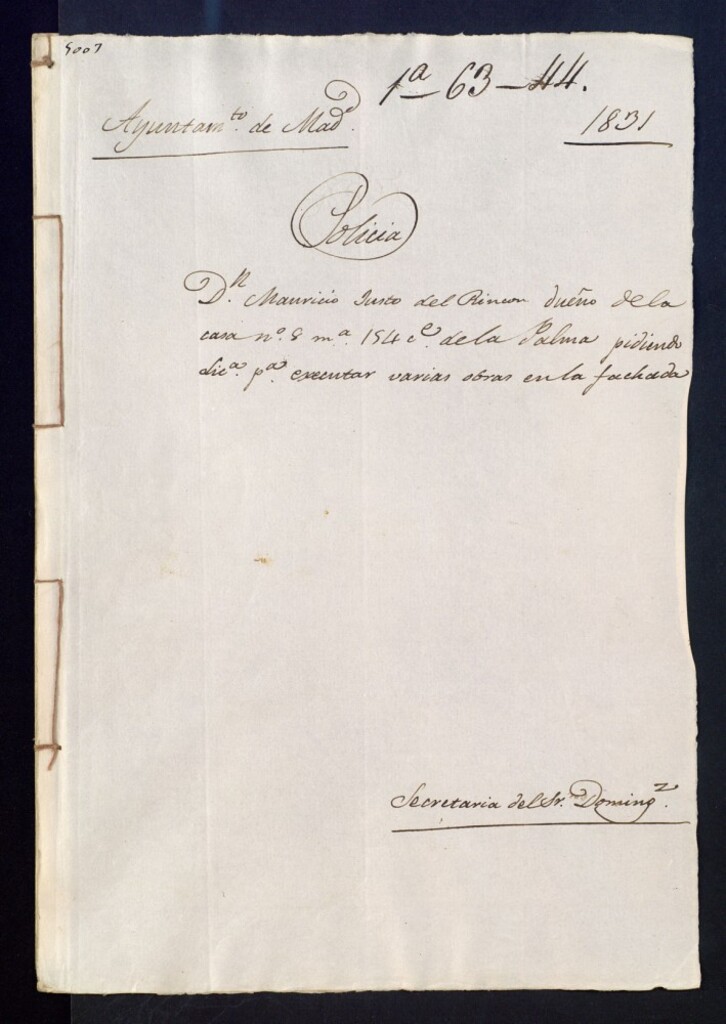 5007
1ª-63-44.
Ayuntam.to de Mad.d
1831
Policia
D.n Mauricio Justo del Rincon dueño de la
casa nº. 8 m.ª 154 c.e de la Palma pidiendo
lic.ª p.ª executar varias obras en la fachada
Secretaria del Sr. Doming.z